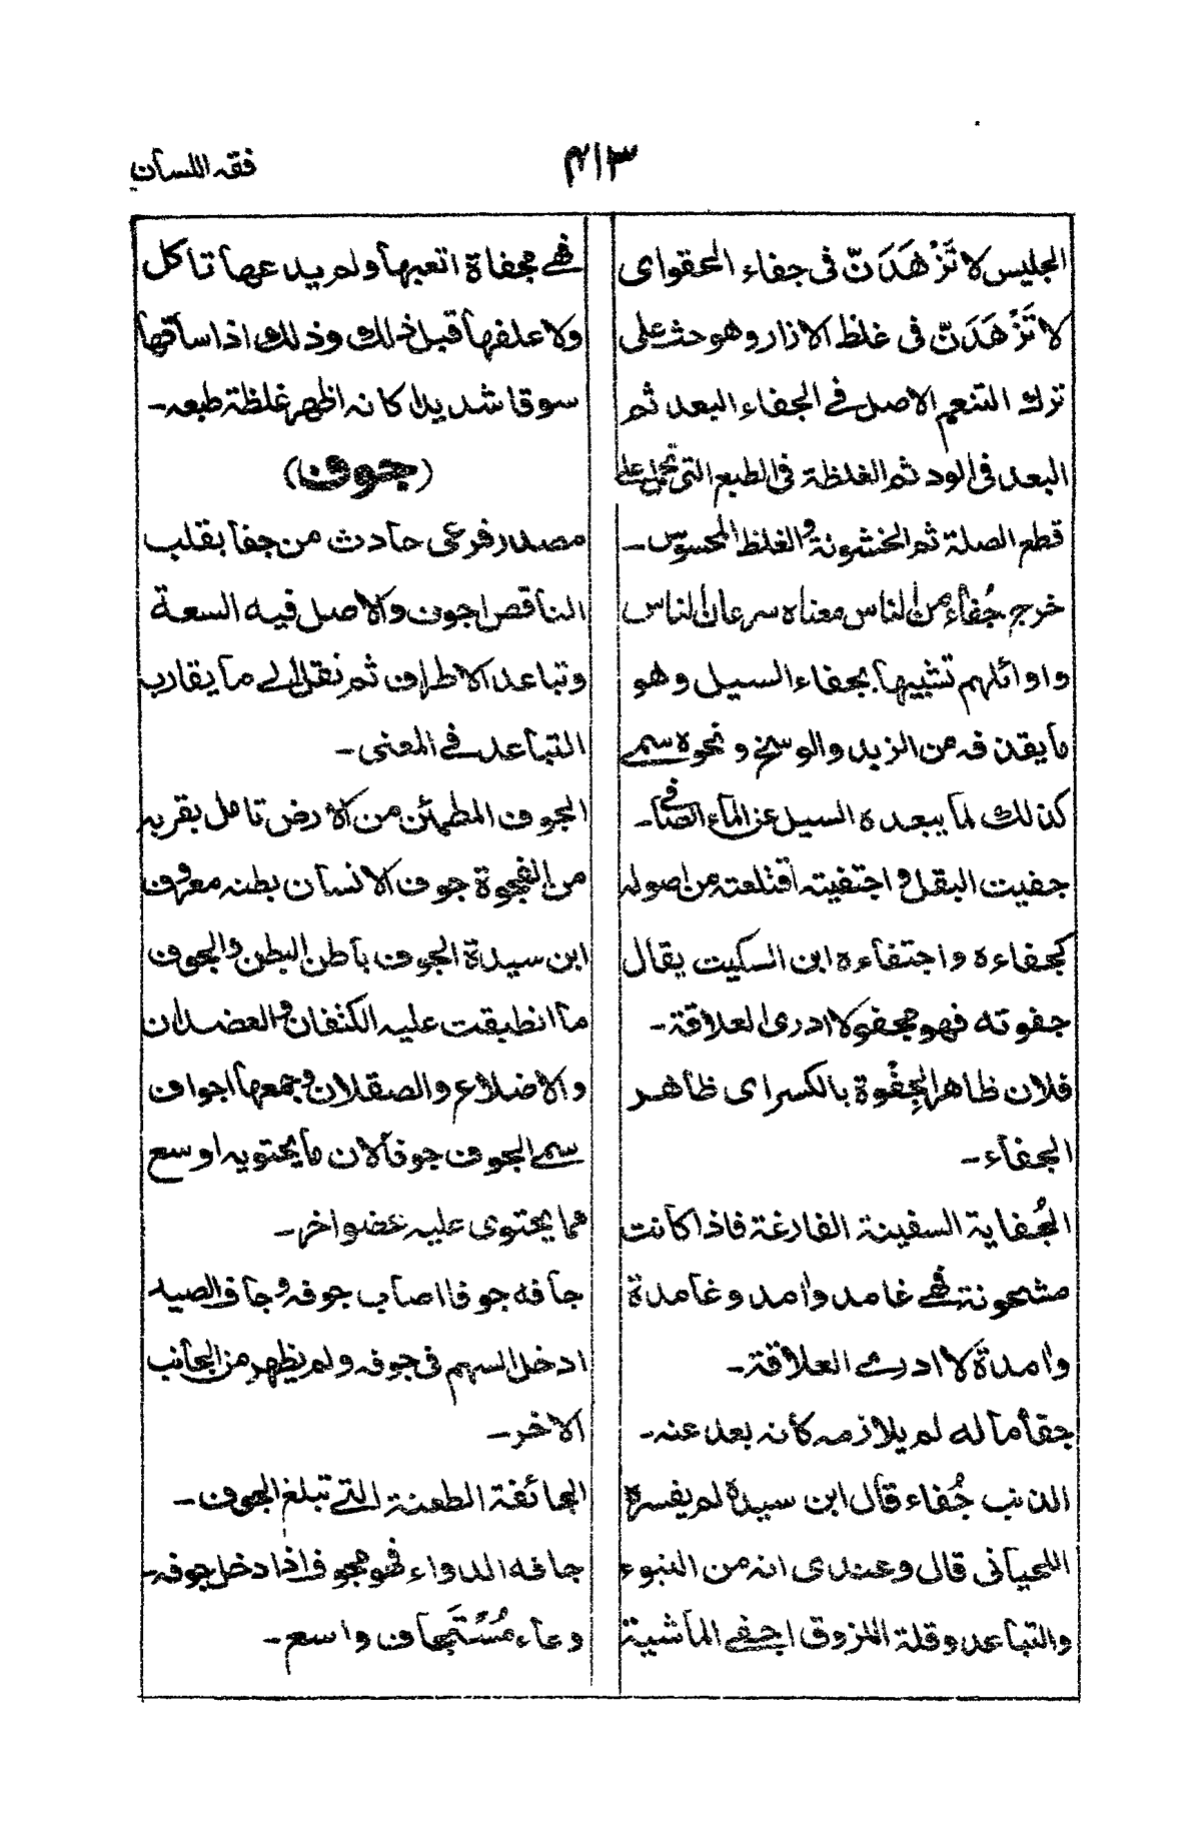 فقہ اللسان
۳۱۳
الجلیس لا تَزْهَدَنّ فی جفاء الحقو ای
لا تَزْهَدَنّ فی غلظ الازار وهو حث علی
ترك التنعم الاصل فے الجفاء البعد ثم
البعد فی الود ثم الغلظة فی الطبع التی تحمل علی
قطع الصلة ثم الخشونة و الغلظ المحسوس ۔
خرج جُفاء من الناس معناه سرعان الناس
واوائلهم تشبیها بجفاء السیل وهو
ما یقذفه من الزبد والوسخ ونحوه سمے
کذلك لما یبعده السیل عن الماء الصافے ۔
جفیت البقل و اجتفیته اقتلعته من اصوله
کجفاءه واجتفاءه ابن السکیت یقال
جفوته فهو مجفو لا ادری العلاقة ۔
فلان ظاهر الجِفْوة بالکسر ای ظاهر
الجفاء ۔
الجُفایة السفینة الفارغة فاذا کانت
مشحونة فهے غامد وامد و غامدة
وامدة لا ادرے العلاقة ۔
جفأ ماله لم یلازمه کانه بعد عنه ۔
الذنب جُفاء قال ابن سیدة لم یفسره
اللحیانی قال وعندی انه من النبوء
والتباعد وقلة اللزوق اجفے الماشیة
فهے مجفاة اتعبها ولم یدعها تاکل
ولا علفها قبل ذلك وذلك اذا ساقها
سوقا شدیدا کانه اظهر غلظة طبعه ۔
(جوف)
مصدر فرعی حادث من جفا بقلب
الناقص اجوف والاصل فیه السعة
وتباعد الاطراف ثم نقل الے ما یقارب
التباعد فے المعنی ۔
الجوف المطمئن من الارض تامل بقربه
من الفجوة جوف الانسان بطنه معروف
ابن سیدة الجوف باطن البطن والجوف
ما انطبقت علیه الکتفان والعضدان
والاضلاع والصقلان وجمعها اجواف
سمے الجوف جوفا لان ما یحتویه اوسع
مما یحتوی علیه عضو اخر ۔
جافه جوفا اصاب جوفه و جاف الصید
ادخل السهم فی جوفه ولم یظهر من الجانب
الاخر ۔
الجائفة الطعنة التے تبلغ الجوف ۔
جافه الدواء فهو مجوف اذا دخل جوفه ۔
وعاء مُسْتَجاف واسع ۔